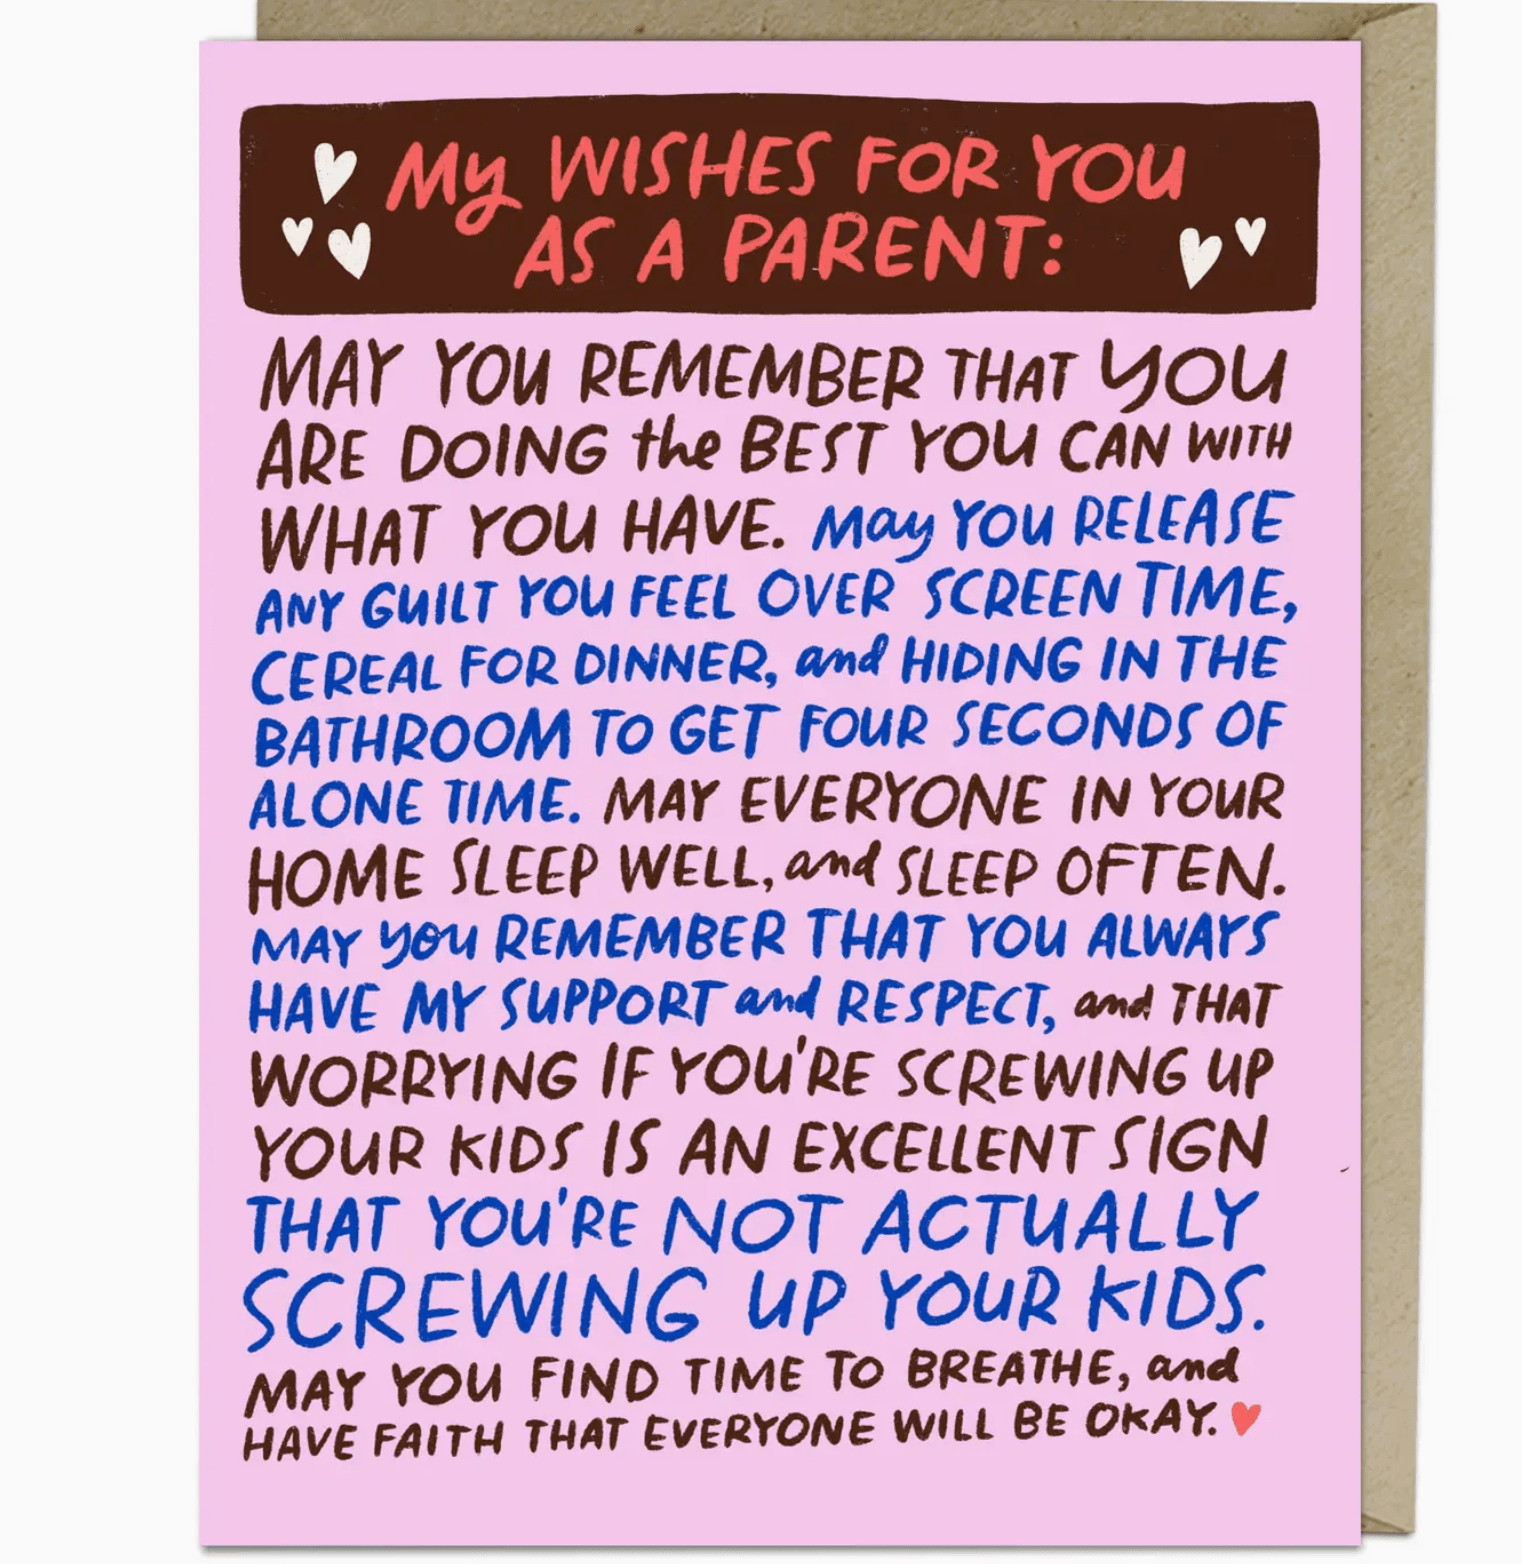 My WISHES FOR YOU
AS A PARENT:
MAY YOU REMEMBER THAT YOU
ARE DOING the BEST YOU CAN WITH
WHAT YOU HAVE. May YOU RELEASE
ANY GUILT YOU FEEL OVER SCREEN TIME,
CEREAL FOR DINNER, and HIDING IN THE
BATHROOM TO GET FOUR SECONDS OF
ALONE TIME. MAY EVERYONE IN YOUR
HOME SLEEP WELL, and SLEEP OFTEN.
MAY you REMEMBER THAT YOU ALWAYS
HAVE MY SUPPORT and RESPECT, and THAT
WORRYING IF YOU'RE SCREWING UP
YOUR KIDS IS AN EXCELLENT SIGN
THAT YOU'RE NOT ACTUALLY
SCREWING UP YOUR KIDS.
MAY YOU FIND TIME TO BREATHE, and
HAVE FAITH THAT EVERYONE WILL BE OKAY.